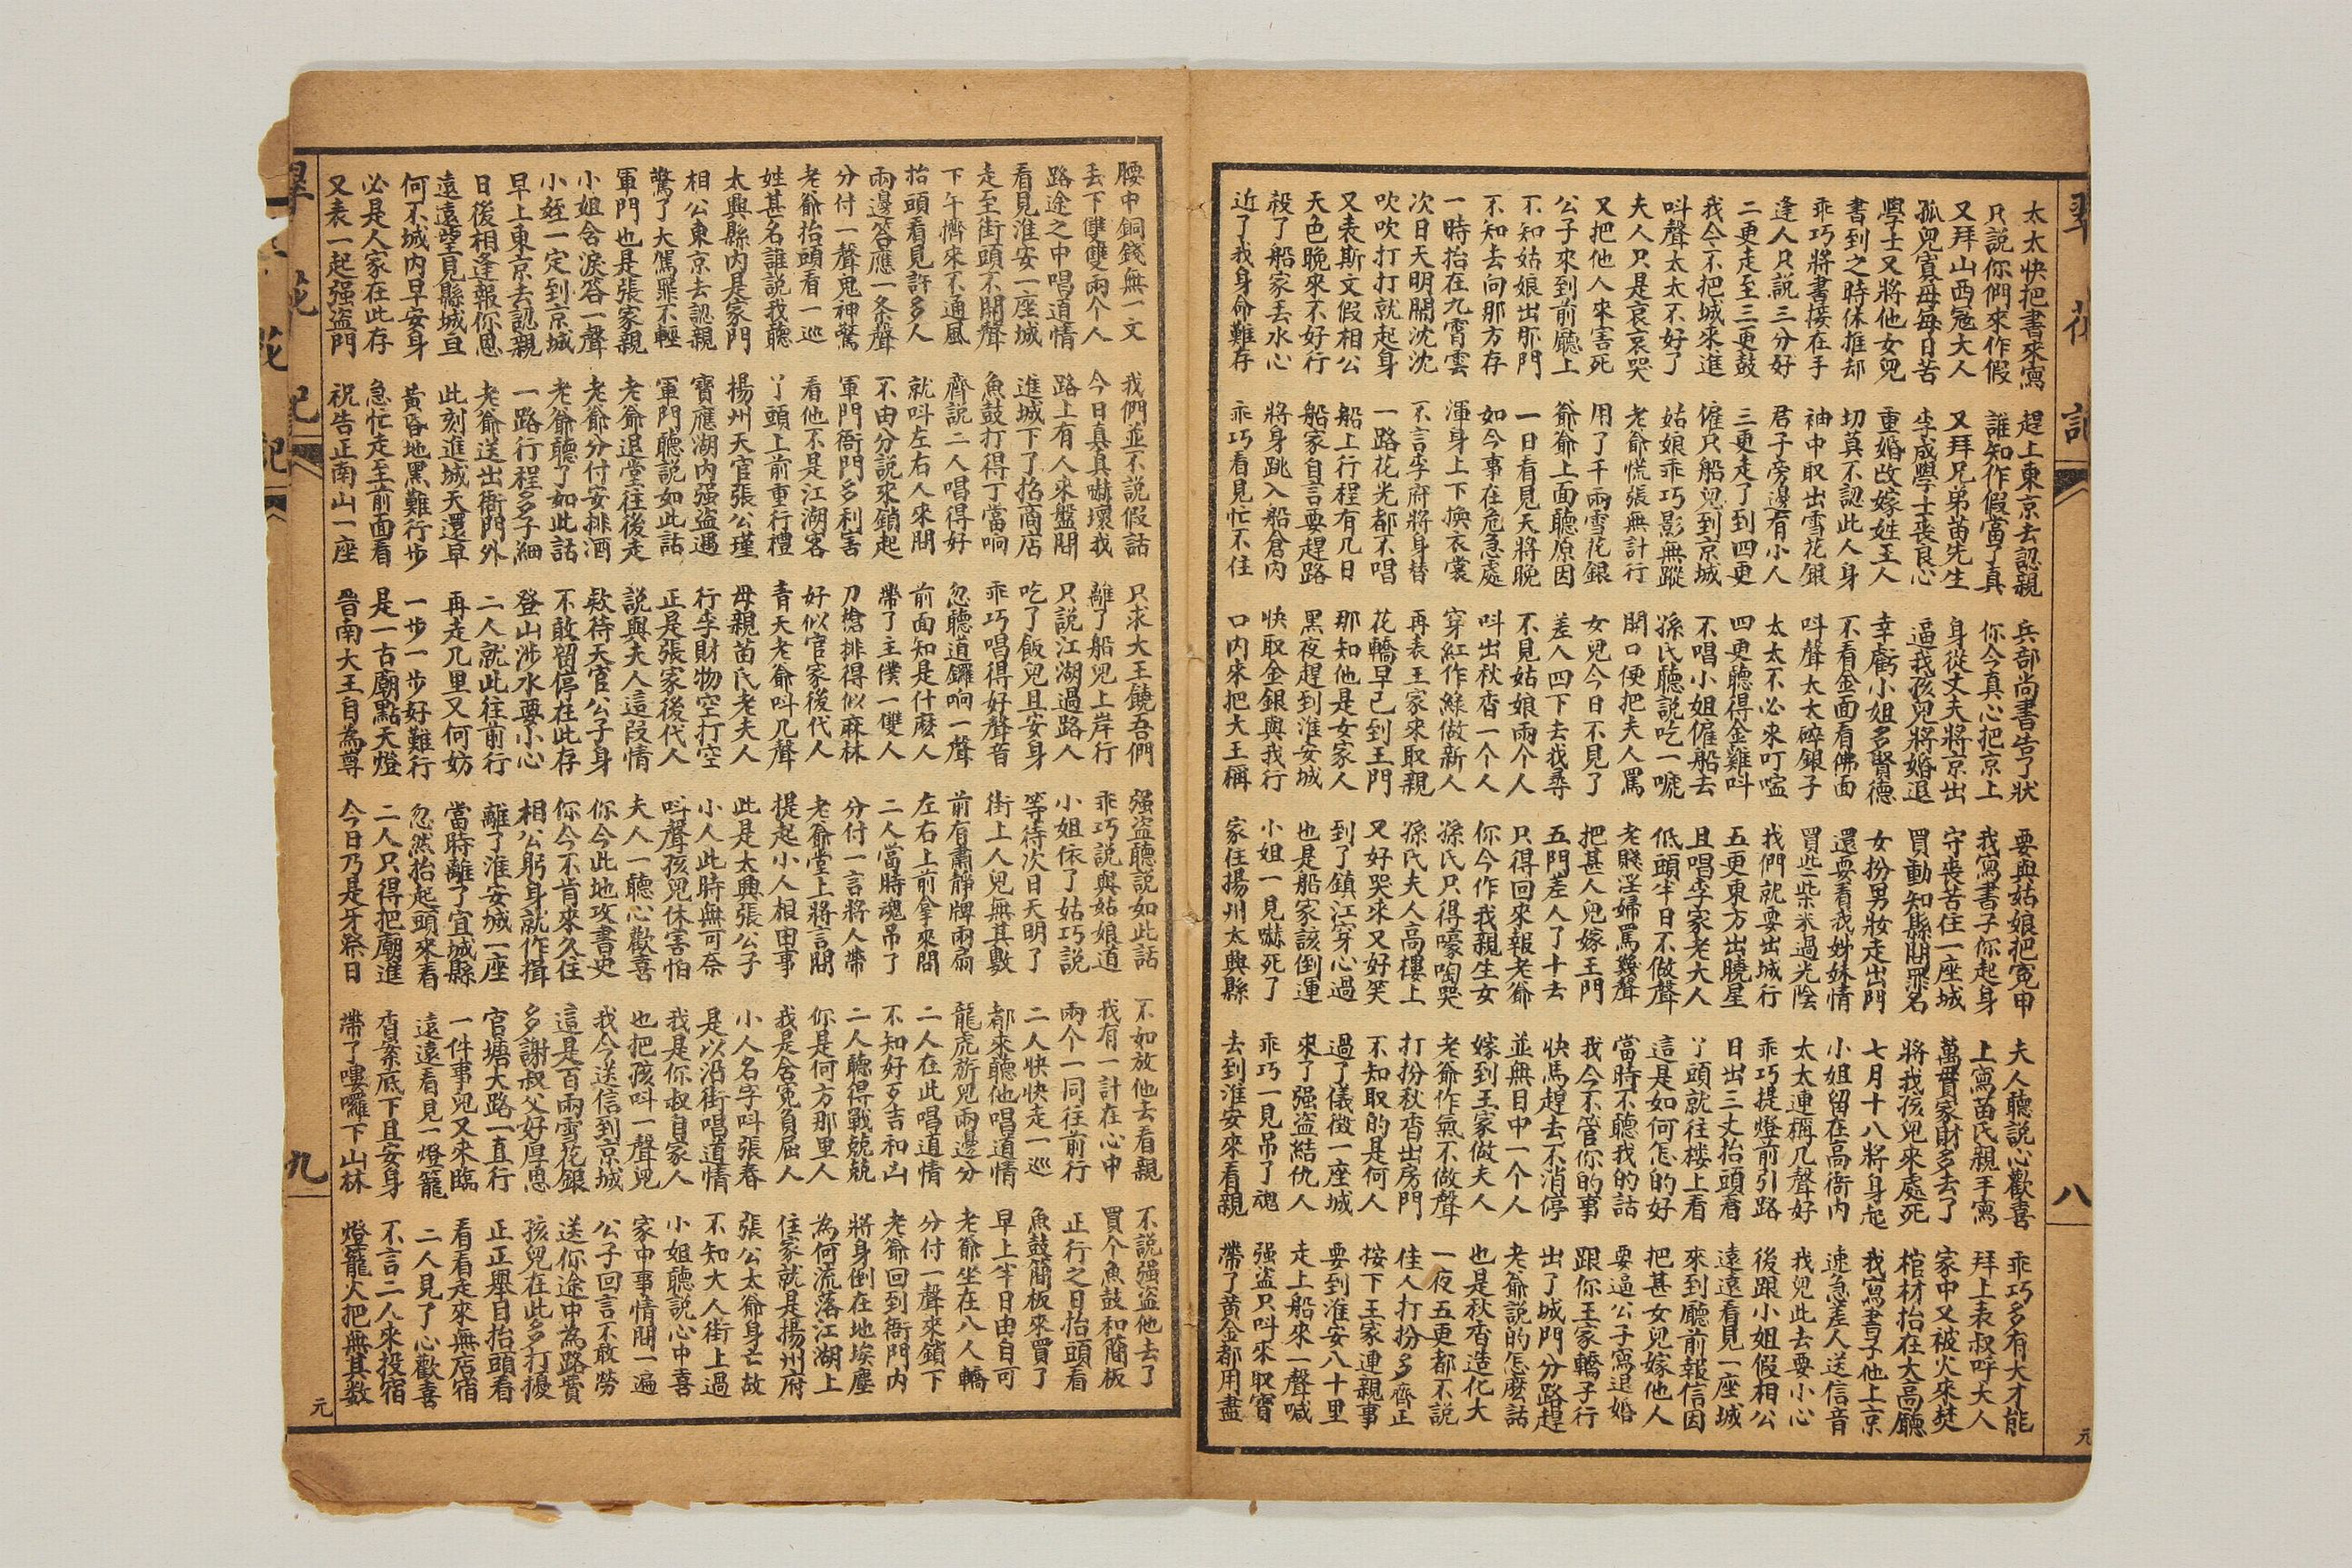 翠花記
八
元
太太快把書來寫 趕上東京去認親 兵部尚書告了狀 要與姑娘把寃申 夫人聽說心歡喜 乖巧多有大才能
只說你們來作假 誰知作假當了真 你今真心把京上 我寫書子你起身 上寫苗氏親手寫 拜上表叔呼大人
又拜山西冦大人 又拜兄弟苗先生 身從丈夫將京出 守丧苦住一座城 萬貫家財多去了 家中又被火來焚
孤兒寡母每日苦 李成學士丧良心 逼我孩兒將婚退 買動知縣問罪名 將我孩兒來處死 棺材抬在大高廳
學士又將他女兒 重婚改嫁姓王人 幸虧小姐多賢德 女扮男妝走出門 七月十八將身起 我寫書子他上京
書到之時休推却 切莫不認此人身 不看金面看佛面 還要看我姊妹情 小姐留在高衙內 速急差人送信音
乖巧將書接在手 袖中取出雪花銀 呌聲太太碎銀子 買些柴米過光陰 太太連稱几聲好 我兒此去要小心
逢人只說三分好 君子旁邊有小人 太太不必來叮嚀 我們就要出城行 乖巧提燈前引路 後跟小姐假相公
二更走至三更鼓 三更走了到四更 四更聽得金雞呌 五更東方出曉星 日出三丈抬頭看 遠遠看見一座城
我今不把城來進 僱只船兒到京城 不唱小姐僱船去 且唱李家老大人 丫頭就往楼上看 來到廳前報信因
呌聲太太不好了 姑娘乖巧影無蹤 孫氏聽說吃一唬 低頭半日不做聲 這是如何怎的好 把甚女兒嫁他人
夫人只是哀哀哭 老爺慌張無計行 開口便把夫人罵 老賤淫婦罵幾聲 當時不聽我的話 要逼公子寫退婚
又把他人來害死 用了千兩雪花銀 女兒今日不見了 把甚人兒嫁王門 我今不管你的事 跟你王家轎子行
公子來到前廳上 爺爺上面聽原因 差人四下去我尋 五門差人了十去 快馬趕去不消停 出了城門分路趕
不知姑娘出那門 一日看見天將晚 不見姑娘兩个人 只得回來報老爺 並無日中一个人 老爺說的怎麽話
不知去向那方存 如今事在危急處 呌出秋香一个人 你今作我親生女 嫁到王家做夫人 也是秋香造化大
一時抬在九霄雲 渾身上下換衣裳 穿紅作綠做新人 孫氏只得嚎啕哭 老爺作氣不做聲 一夜五更都不說
次日天明鬧沈沈 不言李府將身替 再表王家來取親 孫氏夫人高樓上 打扮秋香出房門 佳人打扮多齊正
吹吹打打就起身 一路花光都不唱 花轎早已到王門 又好哭來又好笑 不知取的是何人 按下王家連親事
又表斯文假相公 船上行程有几日 那知他是女家人 到了鎮江穿心過 過了儀徵一座城 要到淮安八十里
天色晚來不好行 船家自言要趕路 黑夜趕到淮安城 也是船家該倒運 來了强盗結仇人 走上船來一聲喊
殺了船家丟水心 將身跳入船倉內 快取金銀與我行 小姐一見嚇死了 乖巧一見吊了魂 强盗只呌來取寳
近了我身命難存 乖巧看見忙不住 口內來把大王稱 家住揚州太興縣 去到淮安來看親 帶了黄金都用盡
腰中銅錢無一文 我們並不說假話 只求大王饒吾們 强盗聽說如此話 不如放他去看親 不說强盗他去了
丟下雙雙兩个人 今日真真嚇壞我 離了船兒上岸行 乖巧說與姑娘道 我有一計在心中 買个魚鼓和簡板
路途之中唱道情 路上有人來盤問 只說江湖過路人 小姐依了姑巧說 兩个一同往前行 正行之日抬頭看
看見淮安一座城 進城下了招商店 吃了飯兒且安身 等待次日天明了 二人快快走一巡 魚鼓簡板來買了
走至街頭不開聲 魚鼓打得丁當响 乖巧唱得好聲音 街上人兒無其數 都來聽他唱道情 早上半日由自可
下午擠來不通風 齊說二人唱得好 忽聽道鑼响一聲 前有肅靜牌兩扇 龍虎旂兒兩邊分 老爺坐在八人轎
抬頭看見許多人 就呌左右人來問 前面知是什麽人 左右上前拿來問 二人在此唱道情 分付一聲來鎖下
兩邊答應一条聲 不由分說來鎖起 帶了主僕一雙人 二人當時魂吊了 不知好歹吉和凶 老爺回到衙門內
分付一聲鬼神驚 軍門衙門多利害 刀槍排得似麻林 分付一言將人帶 二人聽得戰兢兢 將身倒在地埃塵
老爺抬頭看一巡 看他不是江湖客 好似官家後代人 老爺堂上將言問 你是何方那里人 為何流落江湖上
姓甚名誰說我聽 丫頭上前重行禮 青天老爺呌几聲 提起小人相由事 我是含寃負屈人 住家就是揚州府
太興縣內是家門 揚州天官張公瑾 母親苗氏老夫人 此是太興張公子 小人名字呌張春 張公太爺身亡故
相公東京去認親 寶應湖內强盗遇 行李財物空打空 小人此時無可奈 是以沿街唱道情 不知大人街上過
驚了大駕罪不輕 軍門聽說如此話 正是張家後代人 呌聲孩兒休害怕 我是你叔自家人 小姐聽說心中喜
軍門也是張家親 老爺退堂往後走 說與夫人這段情 夫人一聽心歡喜 也把孩呌一聲兒 家中事情問一遍
小姐含淚答一聲 老爺分付安排酒 欵待天官公子身 你今此地攻書史 我今送信到京城 公子回言不敢勞
小姪一定到京城 老爺聽了如此話 不敢留停在此存 你今不肯來久住 這是百兩雪花銀 送你途中為路費
早上東京去認親 一路行程多子細 登山涉水要小心 相公躬身就作揖 多謝叔父好厚恩 孩兒在此多打擾
日後相逢報你恩 老爺送出衙門外 二人就此往前行 離了淮安城一座 官塘大路一直行 正正舉目抬頭看
遠遠望見縣城亘 此刻進城天還早 再走几里又何妨 當時離了宜城縣 一件事兒又來臨 看看走來無店宿
何不城內早安身 黃昏地黑難行步 一步一步好難行 忽然抬起頭來看 遠遠看見一燈籠 二人見了心歡喜
必是人家在此存 急忙走至前面看 是一古廟點天燈 二人只得把廟進 香案底下且安身 不言二人來投宿
又表一起强盗門 祝告正南山一座 晉南大王自為尊 今日乃是牙祭日 帶了嘍囉下山林 燈籠火把無其数
花記
九
元